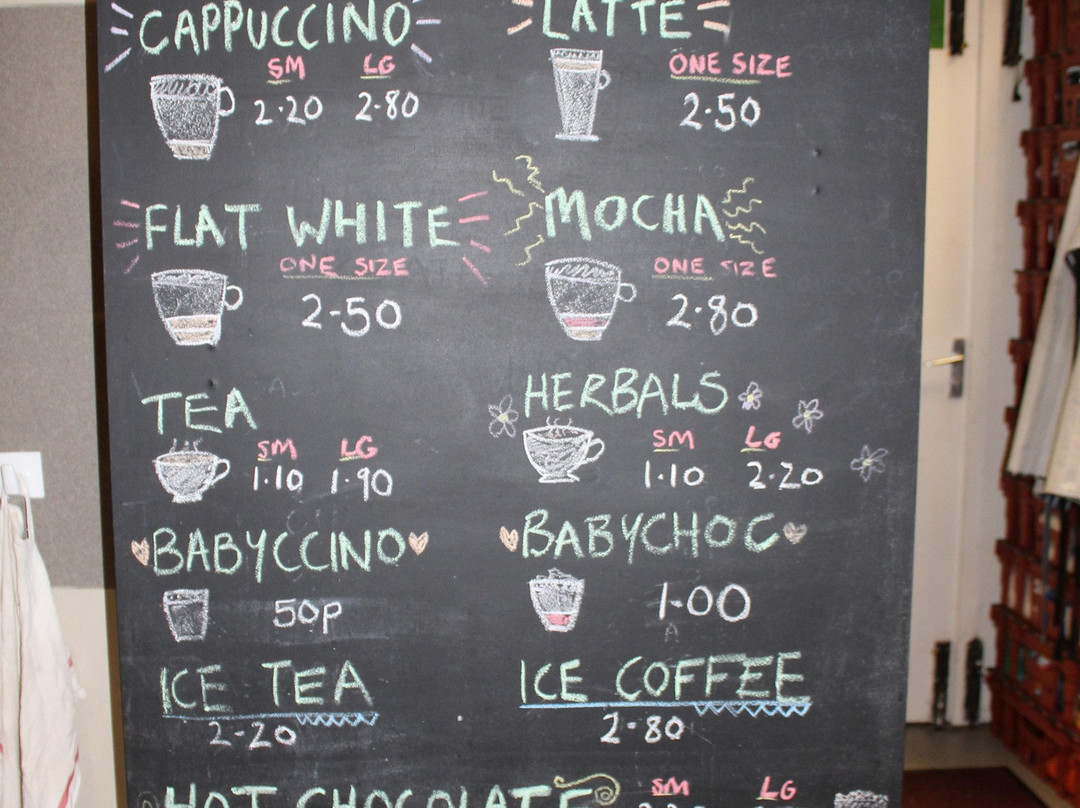 CAPPUCCINO
SM LG
2.20 2.80
LATTE
ONE SIZE
2.50
FLAT WHITE
ONE SIZE
2-50
MOCHA
ONE SIZE
2.80
TEA
SM LG
1.10 1.90
HERBALS
SM LG
1.10 2.20
BABYCCINO
50p
BABYCHOC
1-00
ICE TEA
2-20
ICE COFFEE
2-80
HOT CHOCOLATE
SM LG